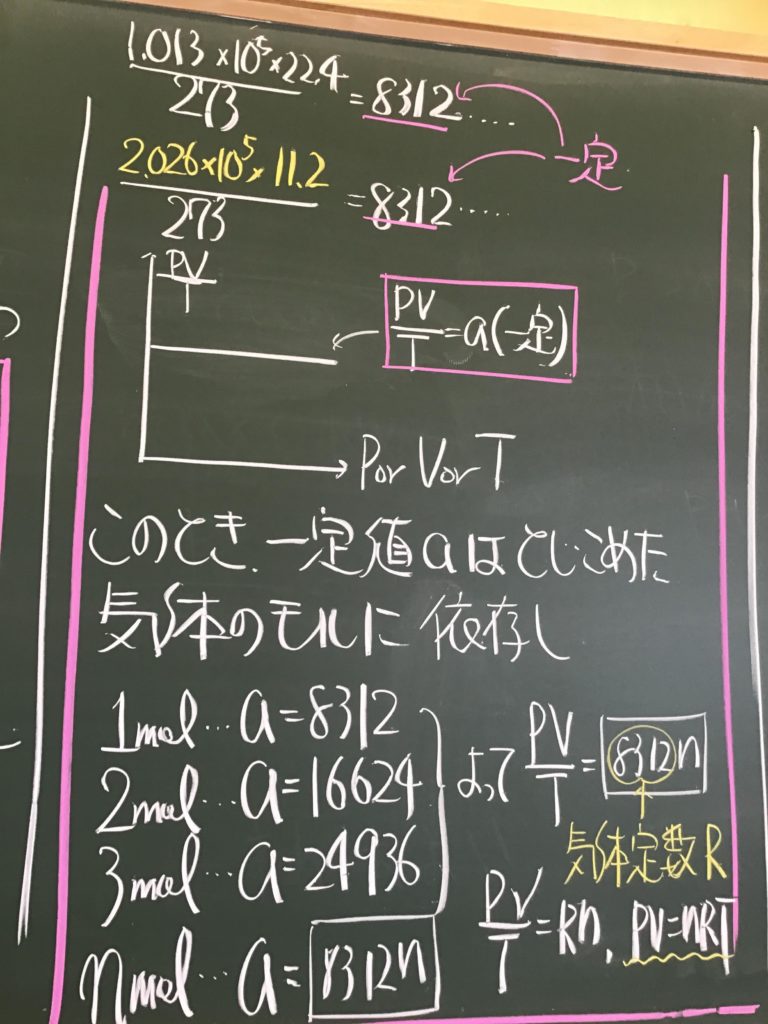 1.013×10⁵×22.4/273=8312.....
一定
2.026×10⁵×11.2/273=8312.....
PV/T
PV/T=a(一定)
P or V or T
このとき、一定値aはとじこめた
気体のモルに依存し
1mol…a=8312
2mol…a=16624
3mol…a=24936
nmol…a=8312n
よってPV/T=8312n
気体定数R
PV/T=Rn, PV=nRT